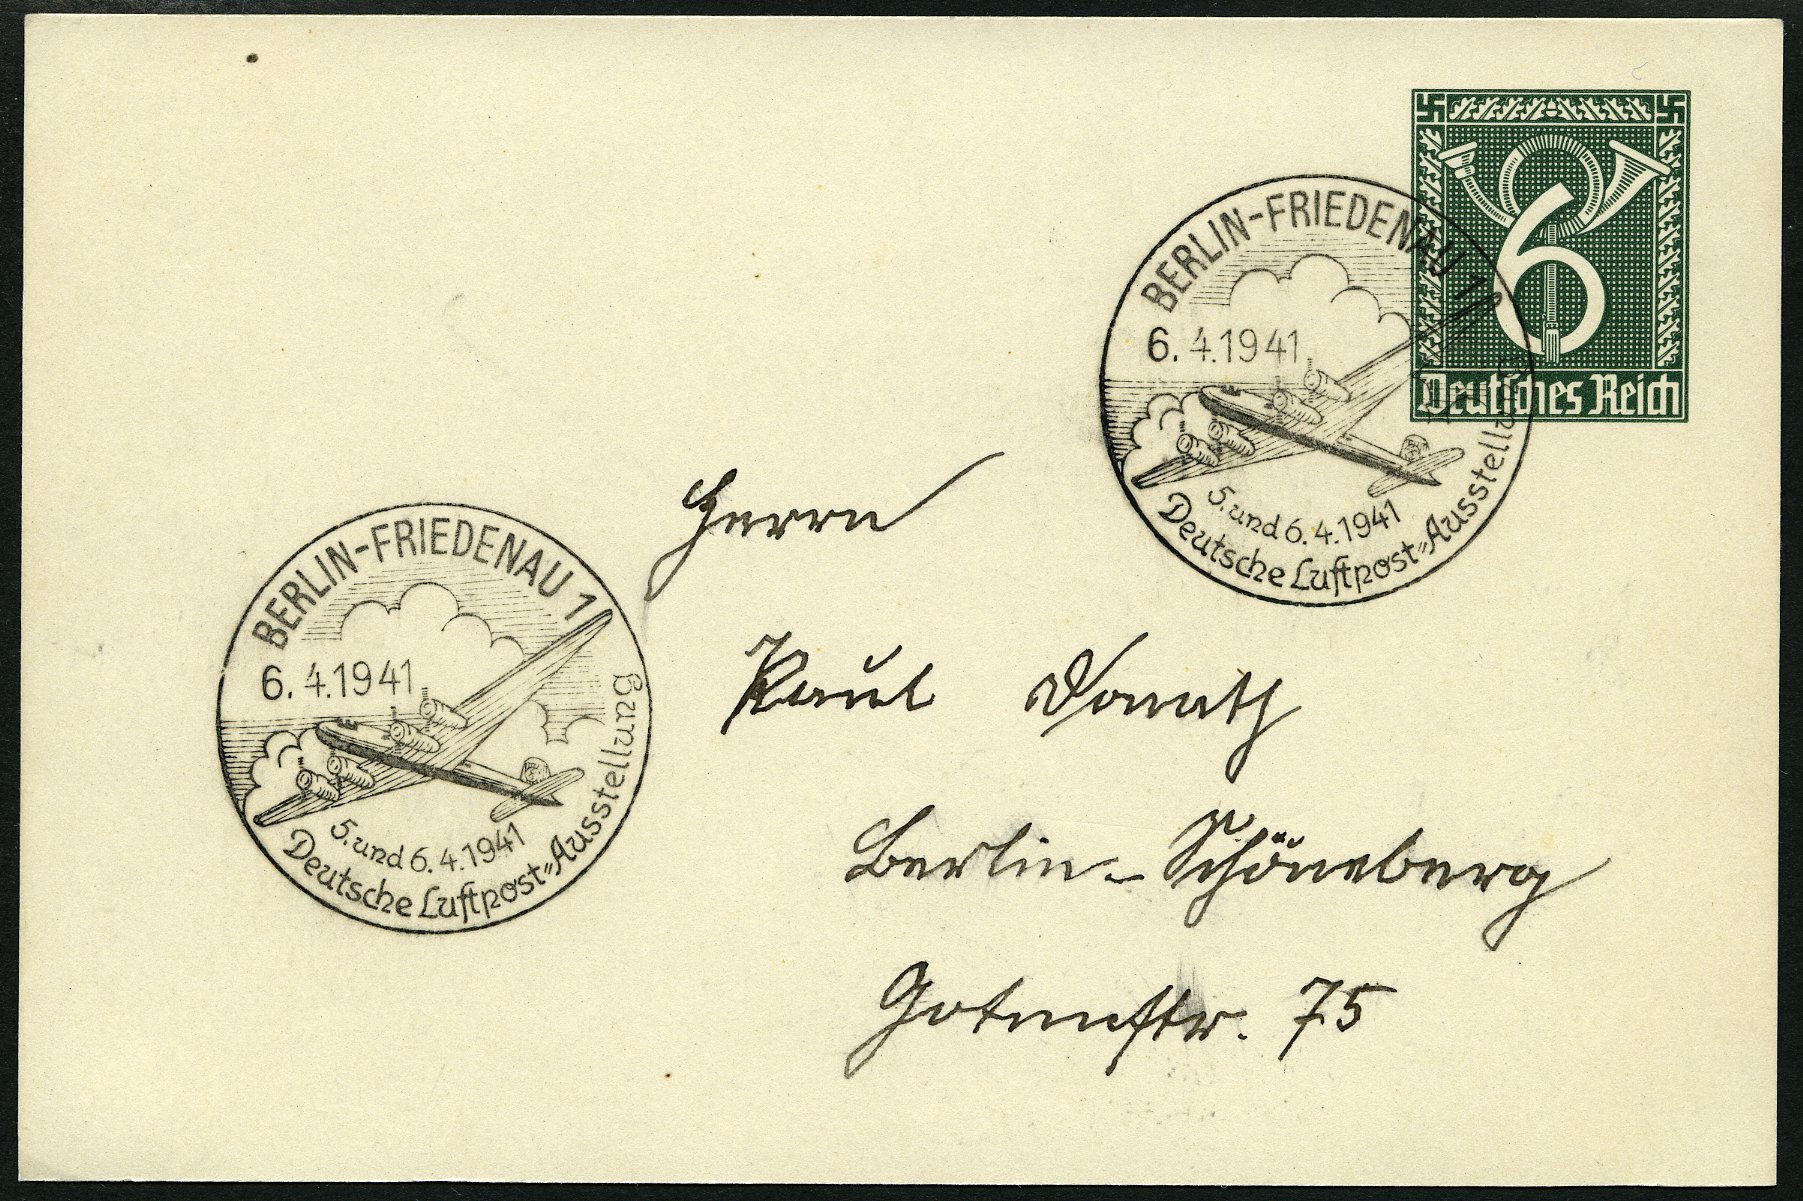 6
Deutsches Reich
BERLIN-FRIEDENAU 1
6.4.1941
5. und 6.4.1941
Deutsche Luftpost=Ausstellung
BERLIN-FRIEDENAU 1
6.4.1941
5. und 6.4.1941
Deutsche Luftpost=Ausstellung
Herrn
Paul Donath
Berlin-Schöneberg
Gotenstr. 75